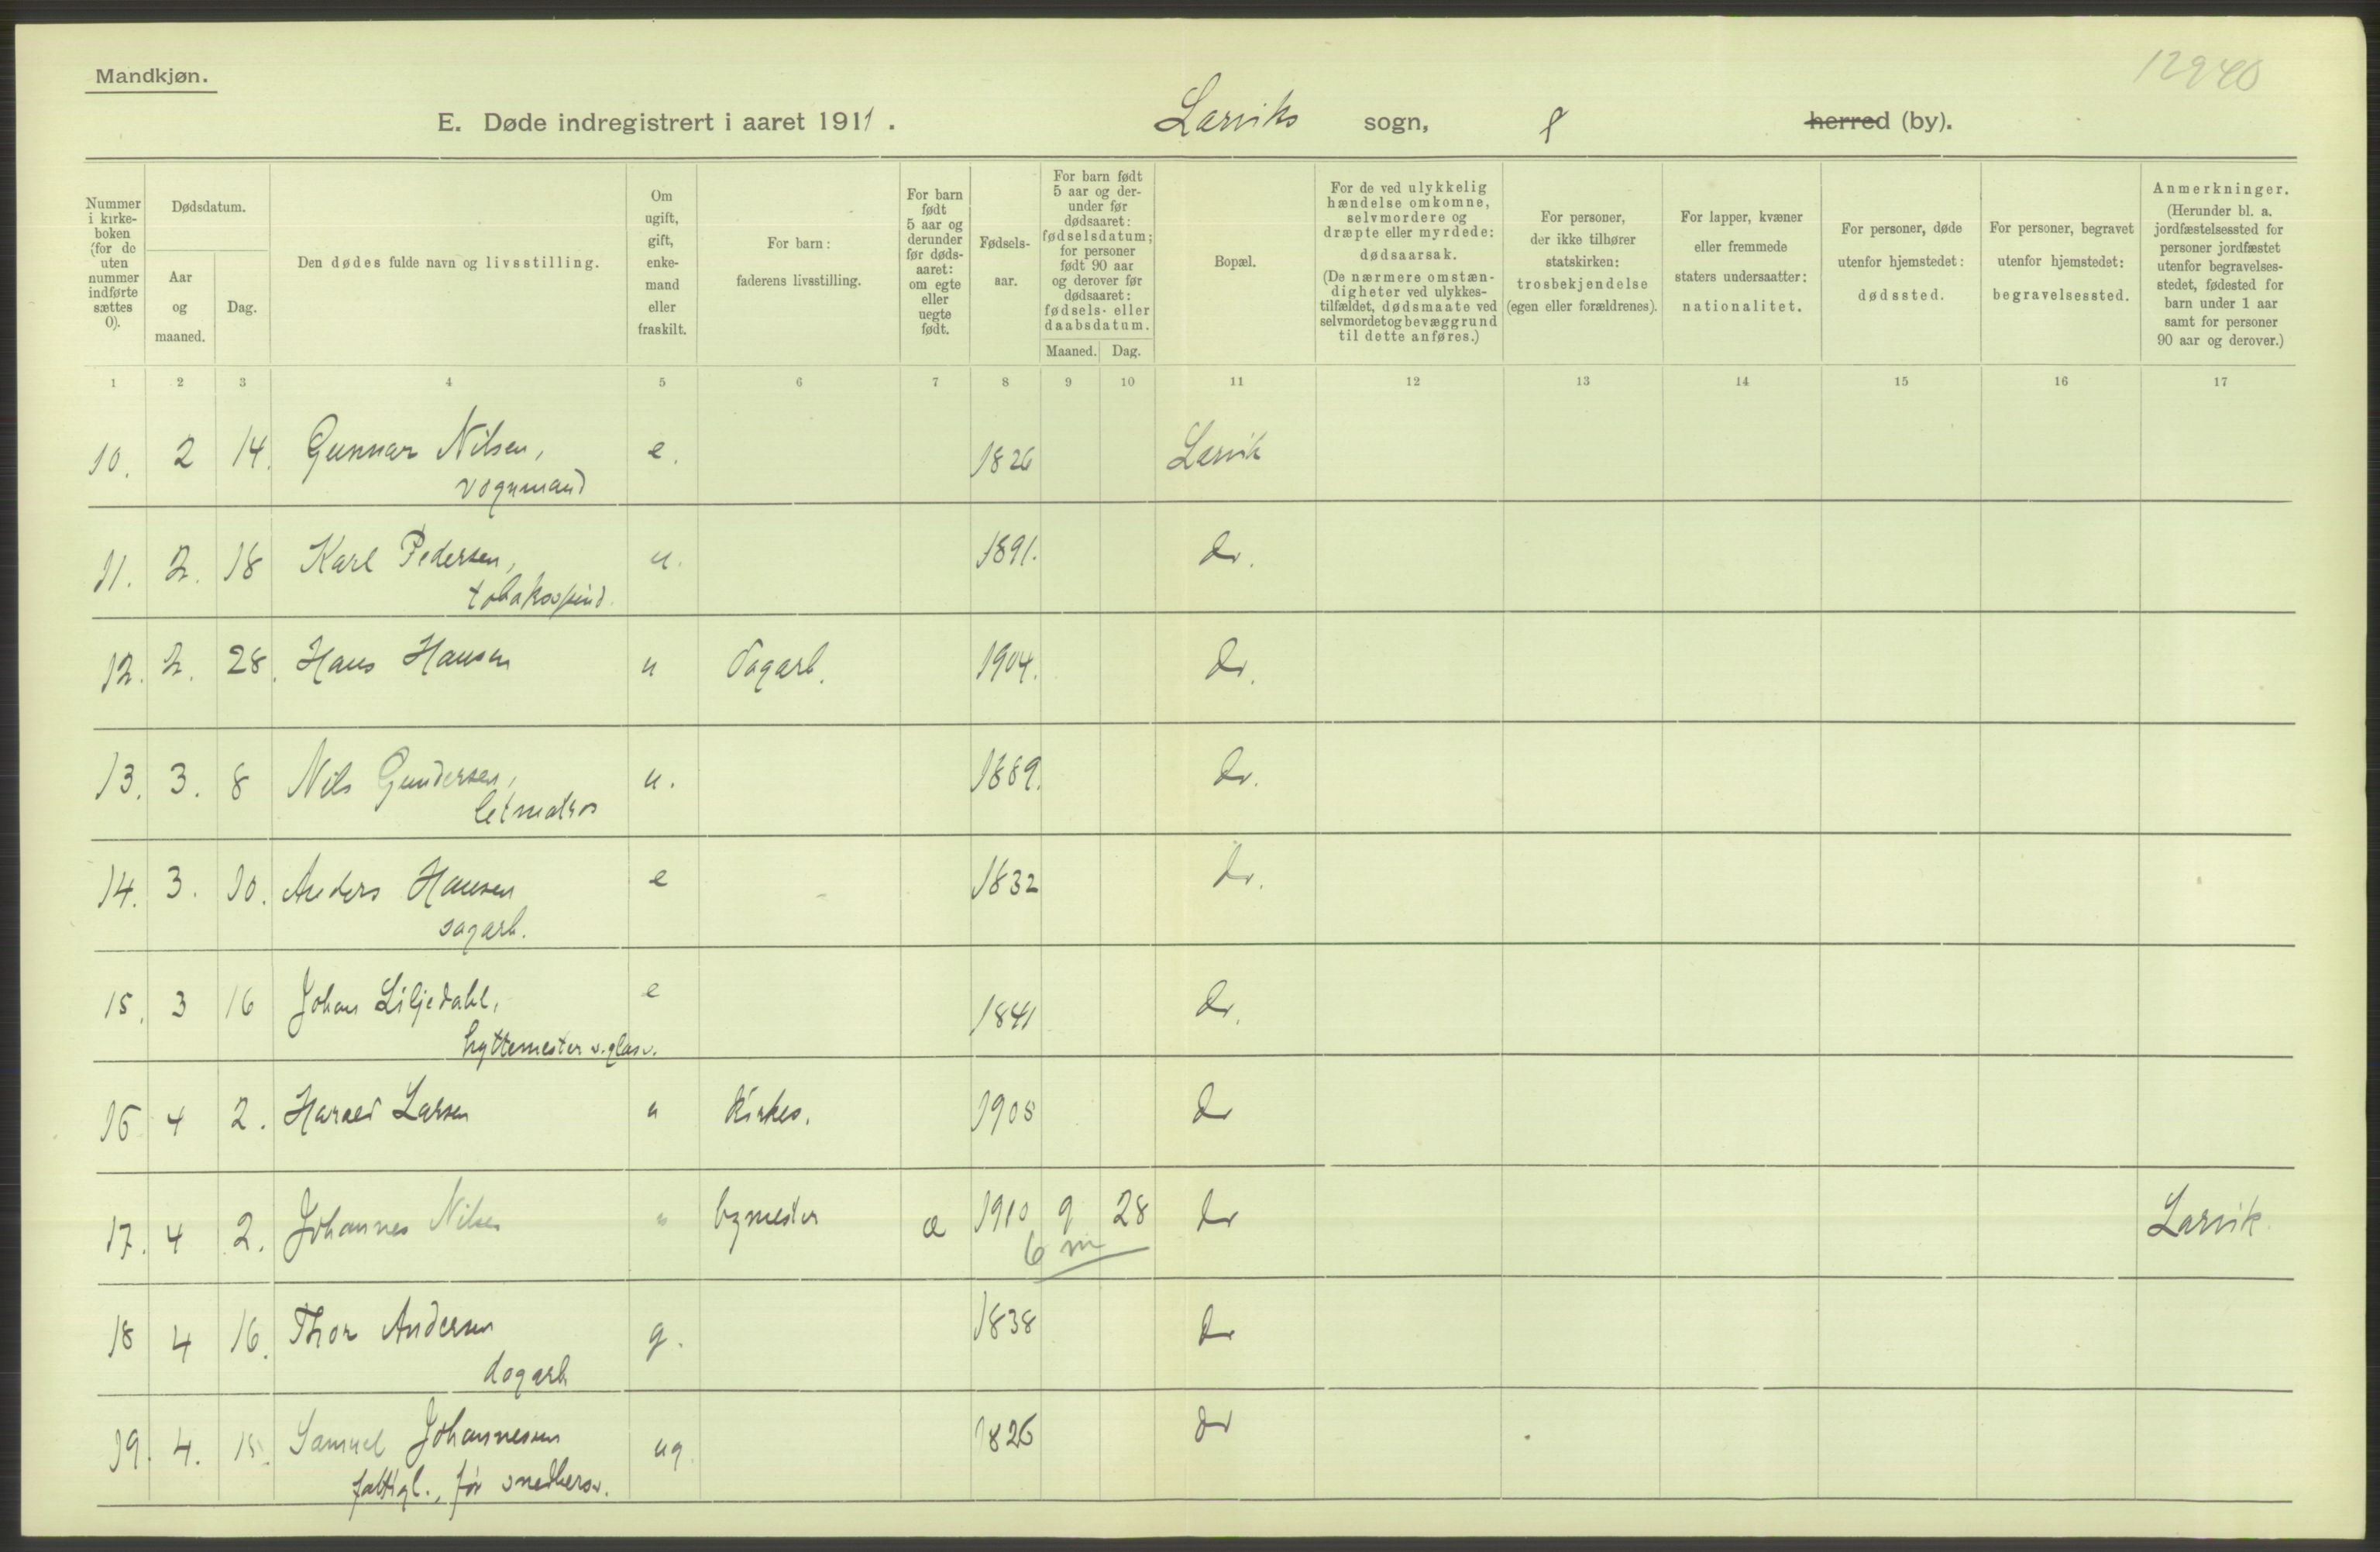 12940
Mandkjøn.
E. Døde indregistrert i aaret 1911. Larviks sogn, herred (by).
Nummer i kirke-boken (for de uten nummer indførte sættes 0).
Dødsdatum.
Aar og maaned.
Dag.
Den dødes fulde navn og livsstilling.
Om ugift, gift, enke-mand eller fraskilt.
For barn: faderens livsstilling.
For barn født 5 aar og derunder før døds-aaret: om egte eller uegte født.
Fødsels-aar.
For barn født 5 aar og der-under før dødsaaret: fødselsdatum; for personer født 90 aar og derover før dødsaaret: fødsels- eller daabsdatum.
Maaned. Dag.
Bopæl.
For de ved ulykkelig hændelse omkomne, selvmordere og dræpte eller myrdede: dødsaarsak. (De nærmere omstæn-digheter ved ulykkes-tilfældet, dødsmaate ved selvmord et og bevæggrund til dette anføres.)
For personer, der ikke tilhører statskirken: trosbekjendelse (egen eller forældrenes).
For lapper, kvæner eller fremmede staters undersaatter: nationalitet.
For personer, døde utenfor hjemstedet: dødssted.
For personer, begravet utenfor hjemstedet: begravelsessted.
Anmerkninger. (Herunder bl. a. jordfæstelsessted for personer jordfæstet utenfor begravelses-stedet, fødested for barn under 1 aar samt for personer 90 aar og derover.)
1 2 3 4 5 6 7 8 9 10 11 12 13 14 15 16 17
10. 2 14. Gunnar Nilsen, e. 1826 Larvik
vognmand
11. 2. 18 Karl Pedersen, u. 1891. do.
tobaksspind.
12. 2. 28. Hans Hansen u dagarb. 1904. do.
13. 3. 8 Nils Gundersen, u. 1889. do.
letmatros
14. 3. 10. Anders Hansen e 1832 do.
sagarb.
15. 3 16 Johan Liljedahl, e 1841 do.
hyttemester v. glasv.
16 4 2. Harald Larsen u 1905 do
17. 4 2. Johannes Nilsen u bymester æ 1910 9 28 do Larvik.
6 m
18 4 16. Thor Andersen g. 1838 do
dagarb
19. 4. 15. Samuel Johannesen ug. 1826 do
fattigl., før snedkersv.